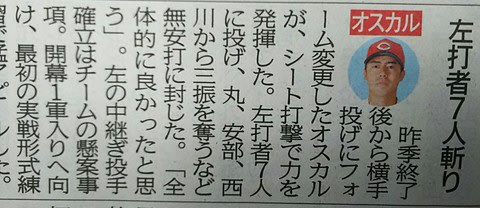 左打者7人斬り
オスカル
昨季終了
後から横手
投げにフォ
ーム変更したオスカル
が、シート打撃で力を
発揮した。左打者7人
に投げ、丸、安部、西
川から三振を奪うなど
無安打に封じた。「全
体的に良かったと思
う」。左の中継ぎ投手
確立はチームの懸案事
項。開幕1軍入りへ向
け、最初の実戦形式練
アピールした。